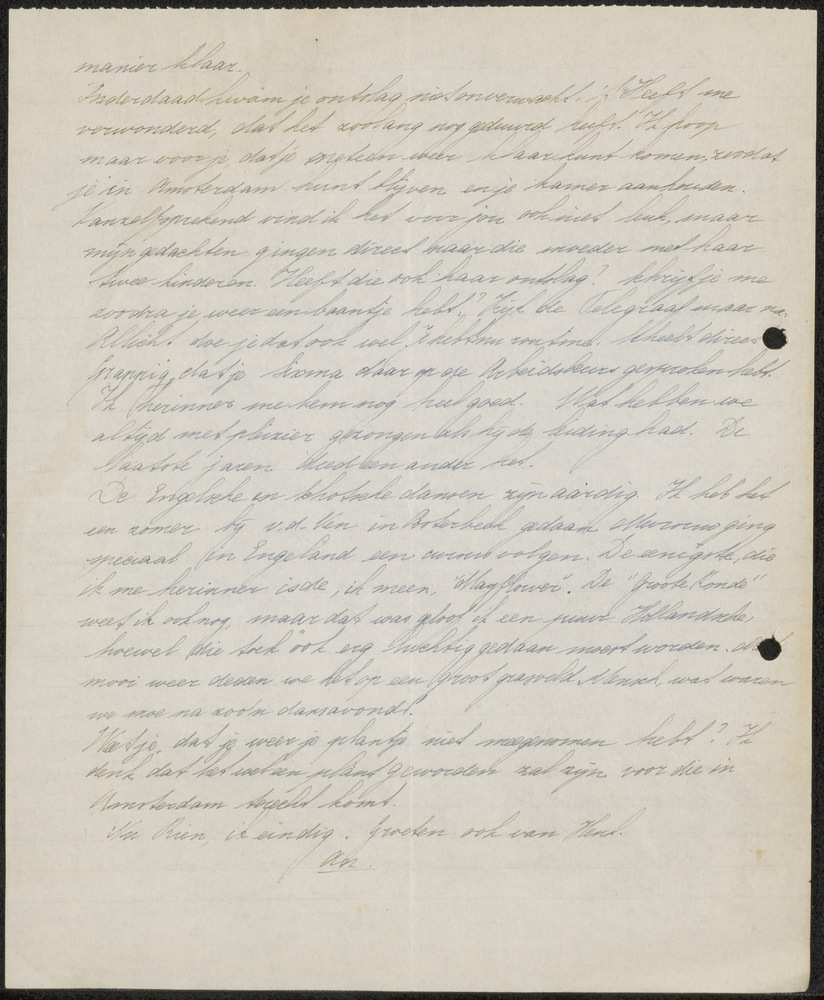 manier klaar.
Inderdaad kwam je ontslag niet onverwacht. 't Heeft me
verwonderd, dat het zoolang nog geduurd heeft. Ik hoop
maar voor je, dat je meteen weer klaar kunt komen, zoodat
je in Amsterdam kunt blijven en je kamer aanhouden.
Vanzelfsprekend vind ik het voor jou ook niet leuk, maar
mijn gedachten gingen direct naar die moeder met haar
twee kinderen. Heeft die ook haar ontslag? Schrijf je me
zoodra je weer een baantje hebt? Kijk de Telegraaf maar na.
Allicht doe je dat ook wel, je hebt nu routine. direct
Grappig, dat je Sixma daar op de Arbeidsbeurs gesproken hebt.
Ik herinner me hem nog heel goed. Wat hebben we
altijd met plezier gezongen als hij de leiding had. De
laatste jaren deed een ander het.
De Engelsche en Schotsche dansen zijn aardig. Ik heb het
een zomer bij v.d. Ven in Oosterbeek gedaan. ging
speciaal in Engeland een cursus volgen. De eenigste, die
ik me herinner is de, ik meen, "Mayflower". De "Groote Ronde"
weet ik ook nog, maar dat was geloof ik een puur Hollandsche,
hoewel die toch ook erg luchtig gedaan moest worden. Met
mooi weer deden we het op een groot grasveld. Mensch, wat waren
we moe na zoo'n dansavond!
Weet je, dat je weer je plantje niet meegenomen hebt? Ik
denk dat het wel een plant geworden zal zijn voor die in
Amsterdam terecht komt.
Nu Rien, ik eindig. Groeten ook van Henk.
An.